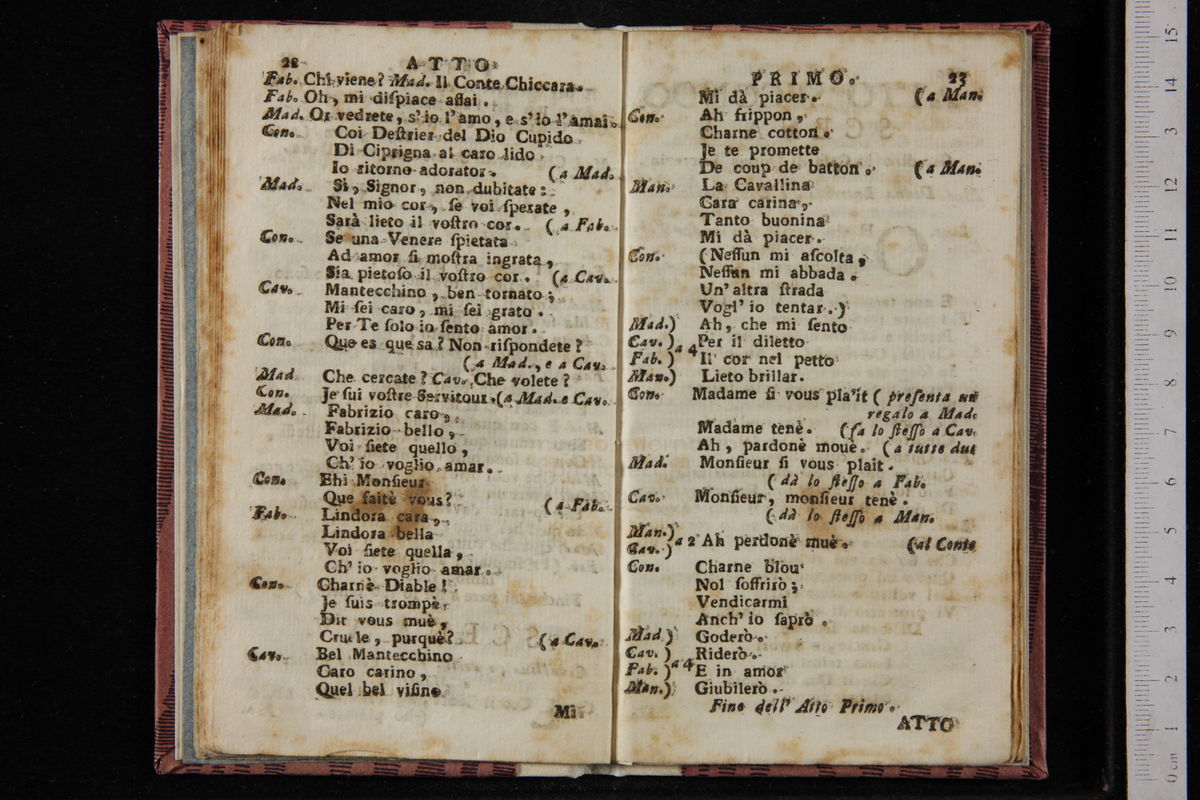 22 ATTO
Fab. Chi viene? Mad. Il Conte Chiccara.
Fab. Oh, mi diſpiace aſſai.
Mad. Or vedrete, s'io l'amo, e s'io l'amai.
Con. Coi Deſtrier del Dio Cupido
Di Ciprigna al caro lido
Io ritorno adorator. (a Mad.
Mad. Si, Signor, non dubitate:
Nel mio cor, ſe voi ſperate,
Sarà lieto il voſtro cor. (a Fab.
Con. Se una Venere ſpietata
Ad amor ſi moſtra ingrata,
Sia pietoſo il voſtro cor. (a Cav.
Cav. Mantecchino, ben tornato;
Mi ſei caro, mi ſei grato.
Per Te ſolo io ſento amor.
Con. Que es que sa? Non riſpondete?
(a Mad., e a Cav.
Mad Che cercate? Cav. Che volete?
Con. Je ſui voſtre Servitour. (a Mad. e Cav.
Mad. Fabrizio caro,
Fabrizio bello,
Voi ſiete quello,
Ch' io voglio amar.
Con. Ehi Monſieur
Que faitè vous? (a Fab.
Fab. Lindora cara,
Lindora bella
Voi ſiete quella,
Ch' io voglio amar.
Con. Charnè Diable!
Je ſuis trompè,
Dit vous muè,
Cruele, purquè? (a Cav.
Cav. Bel Mantecchino
Caro carino,
Quel bel viſino
Mi
PRIMO. 23
Mi dà piacer. (a Man.
Con. Ah frippon,
Charne cotton.
Je te promette
De coup de batton. (a Man.
Man. La Cavallina
Cara carina,
Tanto buonina
Mi dà piacer.
Con. (Neſſun mi aſcolta,
Neſſun mi abbada.
Un' altra ſtrada
Vogl' io tentar.)
Mad.) Ah, che mi ſento
Cav. ) a 4 Per il diletto
Fab. ) Il cor nel petto
Man.) Lieto brillar.
Con. Madame ſi vous pla'it ( preſenta un
regalo a Mad.
Madame tenè. (fa lo ſteſſo a Cav.
Ah, pardonè mouè. (a tutte due
Mad. Monſieur ſi vous plait.
( dà lo ſteſſo a Fab.
Cav. Monſieur, monſieur tenè.
(dà lo ſteſſo a Man.
Man.)
Cav. ) a 2 Ah perdonè muè. (al Conte
Con. Charne blou
Nol ſoffrirò;
Vendicarmi
Anch' io ſaprò.
Mad ) Goderò.
Cav. ) Riderò.
Fab. ) a 4 E in amor
Man.) Giubilerò.
Fine dell' Atto Primo.
ATTO
15
14
13
12
11
10
9
8
7
6
5
4
3
2
1
0 cm